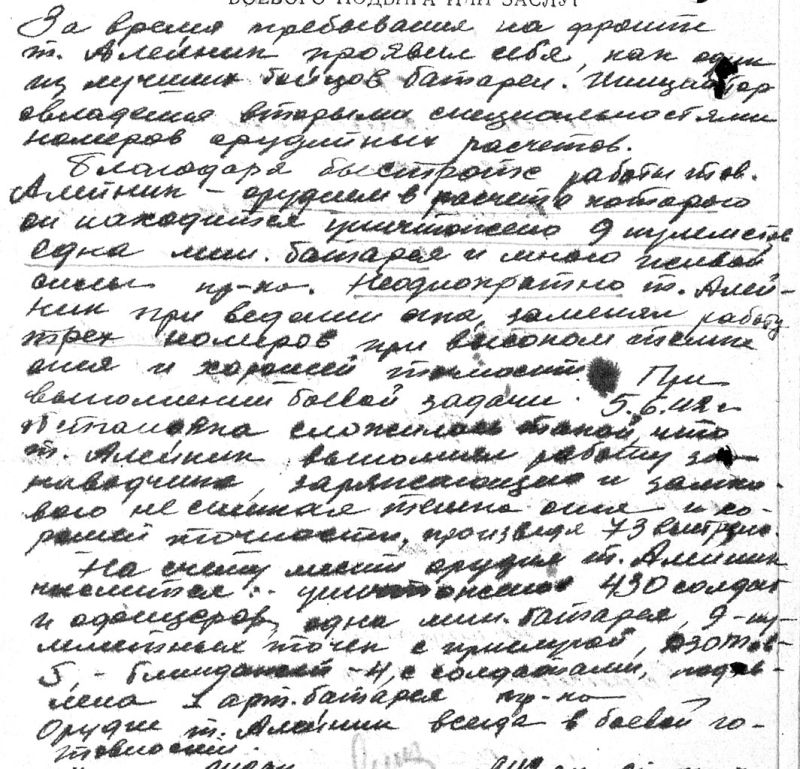 БОЕВОГО ПОДВИГА ИЛИ ЗАСЛУГ
За время пребывания на фронте
т. Алейник проявил себя, как один
из лучших бойцов батареи. Инициатор
овладения вторыми специальностями
номеров орудийных расчетов.
Благодаря быстроте работы тов.
Алейник – орудием в расчете которого
он находится уничтожено 9 пулеметов
одна мин. батарея и много живой
силы пр-ка. Неоднократно т. Алей-
ник при ведении огня, заменял работу
трех номеров при высоком темпе
огня и хорошей точности. При
выполнении боевой задачи 5.6.42 г
обстановка сложилась такой, что
т. Алейник выполнял работу за
наводчика, заряжающего и замко-
вого не снижая темпа огня и хо-
рошей точности, произведя 73 выстрела.
На счету орудия т. Алейник
числится: уничтожено 430 солдат
и офицеров, одна мин. батарея, 9 – пу-
леметных точек с прислугой, ДЗОТов-
5, – блиндажей – 4, с солдатами, подав-
лена 1 арт. батарея пр-ка
Орудие т. Алейник всегда в боевой го-
товности.